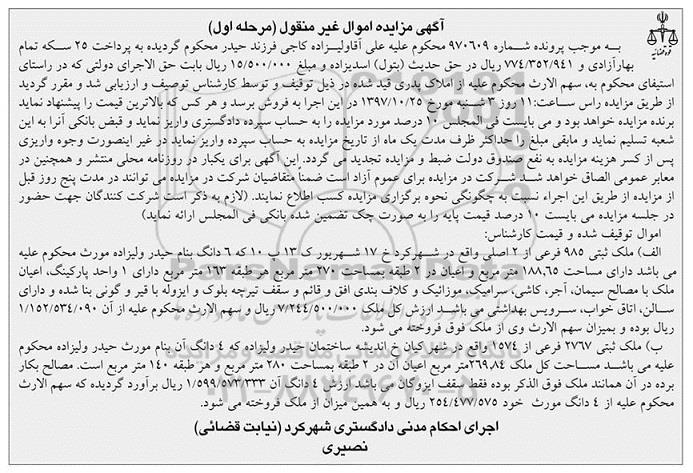 آگهی مزایده اموال غیر منقول (مرحله اول)
به موجب پرونده شماره ۹۷۰۶۰۹ محکوم علیه علی آقاولیزاده کاجی فرزند حیدر محکوم گردیده به پرداخت ۲۵ سکه تمام
بهارآزادی و ۷۷۴/۳۵۲/۹۴۱ ریال در حق حدیث (بتول) اسدیزاده و مبلغ ۱۵/۵۰۰/۰۰۰ ریال بابت حق الاجرای دولتی که در راستای
استیفای محکوم به، سهم الارث محکوم علیه از املاک پدری قید شده در ذیل توقیف و توسط کارشناس توصیف و ارزیابی شد و مقرر گردید
از طریق مزایده راس ساعت: ۱۱ روز ۳ شنبه مورخ ۱۳۹۷/۱۰/۲۵ در این اجرا به فروش برسد و هر کس که بالاترین قیمت را پیشنهاد نماید
برنده مزایده خواهد بود و می بایست فی المجلس ۱۰ درصد مورد مزایده را به حساب سپرده دادگستری واریز نماید و قبض بانکی آنرا به این
شعبه تسلیم نماید و مابقی مبلغ را حداکثر ظرف مدت یک ماه از تاریخ مزایده به حساب سپرده واریز نماید در غیر اینصورت وجوه واریزی
پس از کسر هزینه مزایده به نفع صندوق دولت ضبط و مزایده تجدید می گردد. این آگهی برای یکبار در روزنامه محلی منتشر و همچنین در
معابر عمومی الصاق خواهد شد شرکت در مزایده برای عموم آزاد است ضمناً متقاضیان شرکت در مزایده می توانند در مدت پنج روز قبل
از مزایده از طریق این اجراء نسبت به چگونگی نحوه برگزاری مزایده کسب اطلاع نمایند. (لازم به ذکر است شرکت کنندگان جهت حضور
در جلسه مزایده می بایست ۱۰ درصد قیمت پایه را به صورت چک تضمین شده بانکی فی المجلس ارائه نماید)
اموال توقیف شده و قیمت کارشناس:
الف) ملک ثبتی ۹۸۵ فرعی از ۲ اصلی واقع در شهرکرد خ ۱۷ شهریور ک ۱۳ پ ۱۰ که ۶ دانگ بنام حیدر ولیزاده مورث محکوم علیه
می باشد دارای مساحت ۱۸۸,۶۵ متر مربع و اعیان در ۲ طبقه بمساحت ۲۷۰ متر مربع هر طبقه ۱۶۳ متر مربع دارای ۱ واحد پارکینگ، اعیان
ملک با مصالح سیمان، آجر، کاشی، سرامیک، موزائیک و کلاف بندی افق و قائم و سقف تیرچه بلوک و ایزوله با قیر و گونی بنا شده و دارای
سالن، اتاق خواب، سرویس بهداشتی می باشد ارزش کل ملک ۷/۲۴۴/۵۰۰/۰۰۰ ریال و سهم الارث محکوم علیه از آن ۱/۱۵۲/۵۳۴/۰۹۰
ریال بوده و بمیزان سهم الارث وی از ملک فوق فروخته می شود.
ب) ملک ثبتی ۲۷۶۷ فرعی از ۱۵۷۴ واقع در شهرکیان خ اندیشه ساختمان حیدر ولیزاده که ۴ دانگ آن بنام مورث حیدر ولیزاده محکوم
علیه می باشد مساحت کل ملک ۲۶۹,۸۴ متر مربع اعیان آن در ۲ طبقه بمساحت ۲۸۰ متر مربع و هر طبقه ۱۴۰ متر مربع است. مصالح بکار
برده در آن همانند ملک فوق الذکر بوده فقط سقف ایزوگان می باشد ارزش ۴ دانگ آن ۱/۵۹۹/۵۷۳/۳۳۳ ریال برآورد گردیده که سهم الارث
محکوم علیه از ۴ دانگ مورث خود ۲۵۴/۴۷۷/۵۷۵ ریال و به همین میزان از ملک فروخته می شود.
اجرای احکام مدنی دادگستری شهرکرد (نیابت قضائی)
نصیری